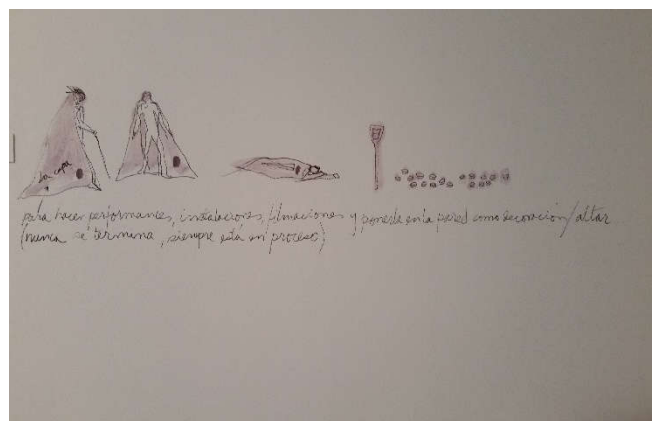 la capa
para hacer performances, instalaciones, filmaciones y ponerla en la pared como decoración/altar
(nunca se termina, siempre está en proceso)